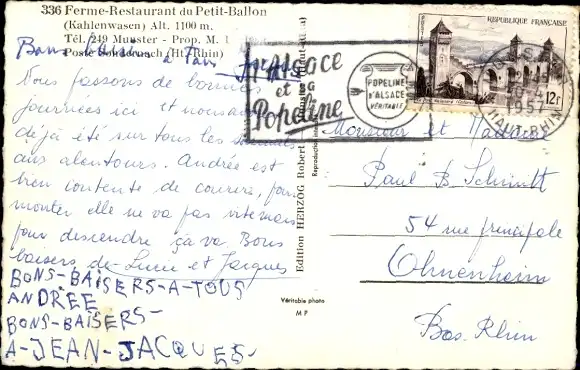 336 Ferme-Restaurant du Petit-Ballon
(Kahlenwasen) Alt. 1100 m.
Tél. 249 Munster - Prop. M.
Poste Sondernach (Ht-Rhin)
Bons baisers à Tous
Nous passons de bonnes
journées ici et nous avons
déjà été sur tous les
aux alentours. Andrée est
bien contente de courir, pour
monter elle ne va pas vite mais
pour descendre ça va. Bons
baisers de Lucie et Jacques
BONS-BAISERS-A-TOUS
ANDRÉE
BONS-BAISERS-
A-JEAN-JACQUES-
Edition HERZOG Robert
Reproduction
Véritable photo
M P
l'Alsace
et sa
Popeline
POPELINE
D'ALSACE
VÉRITABLE
REPUBLIQUE FRANÇAISE
12F
1957
HAUT-RHIN
Monsieur et Madame
Paul B Schmitt
54 rue principale
Ohnenheim
Bas. Rhin